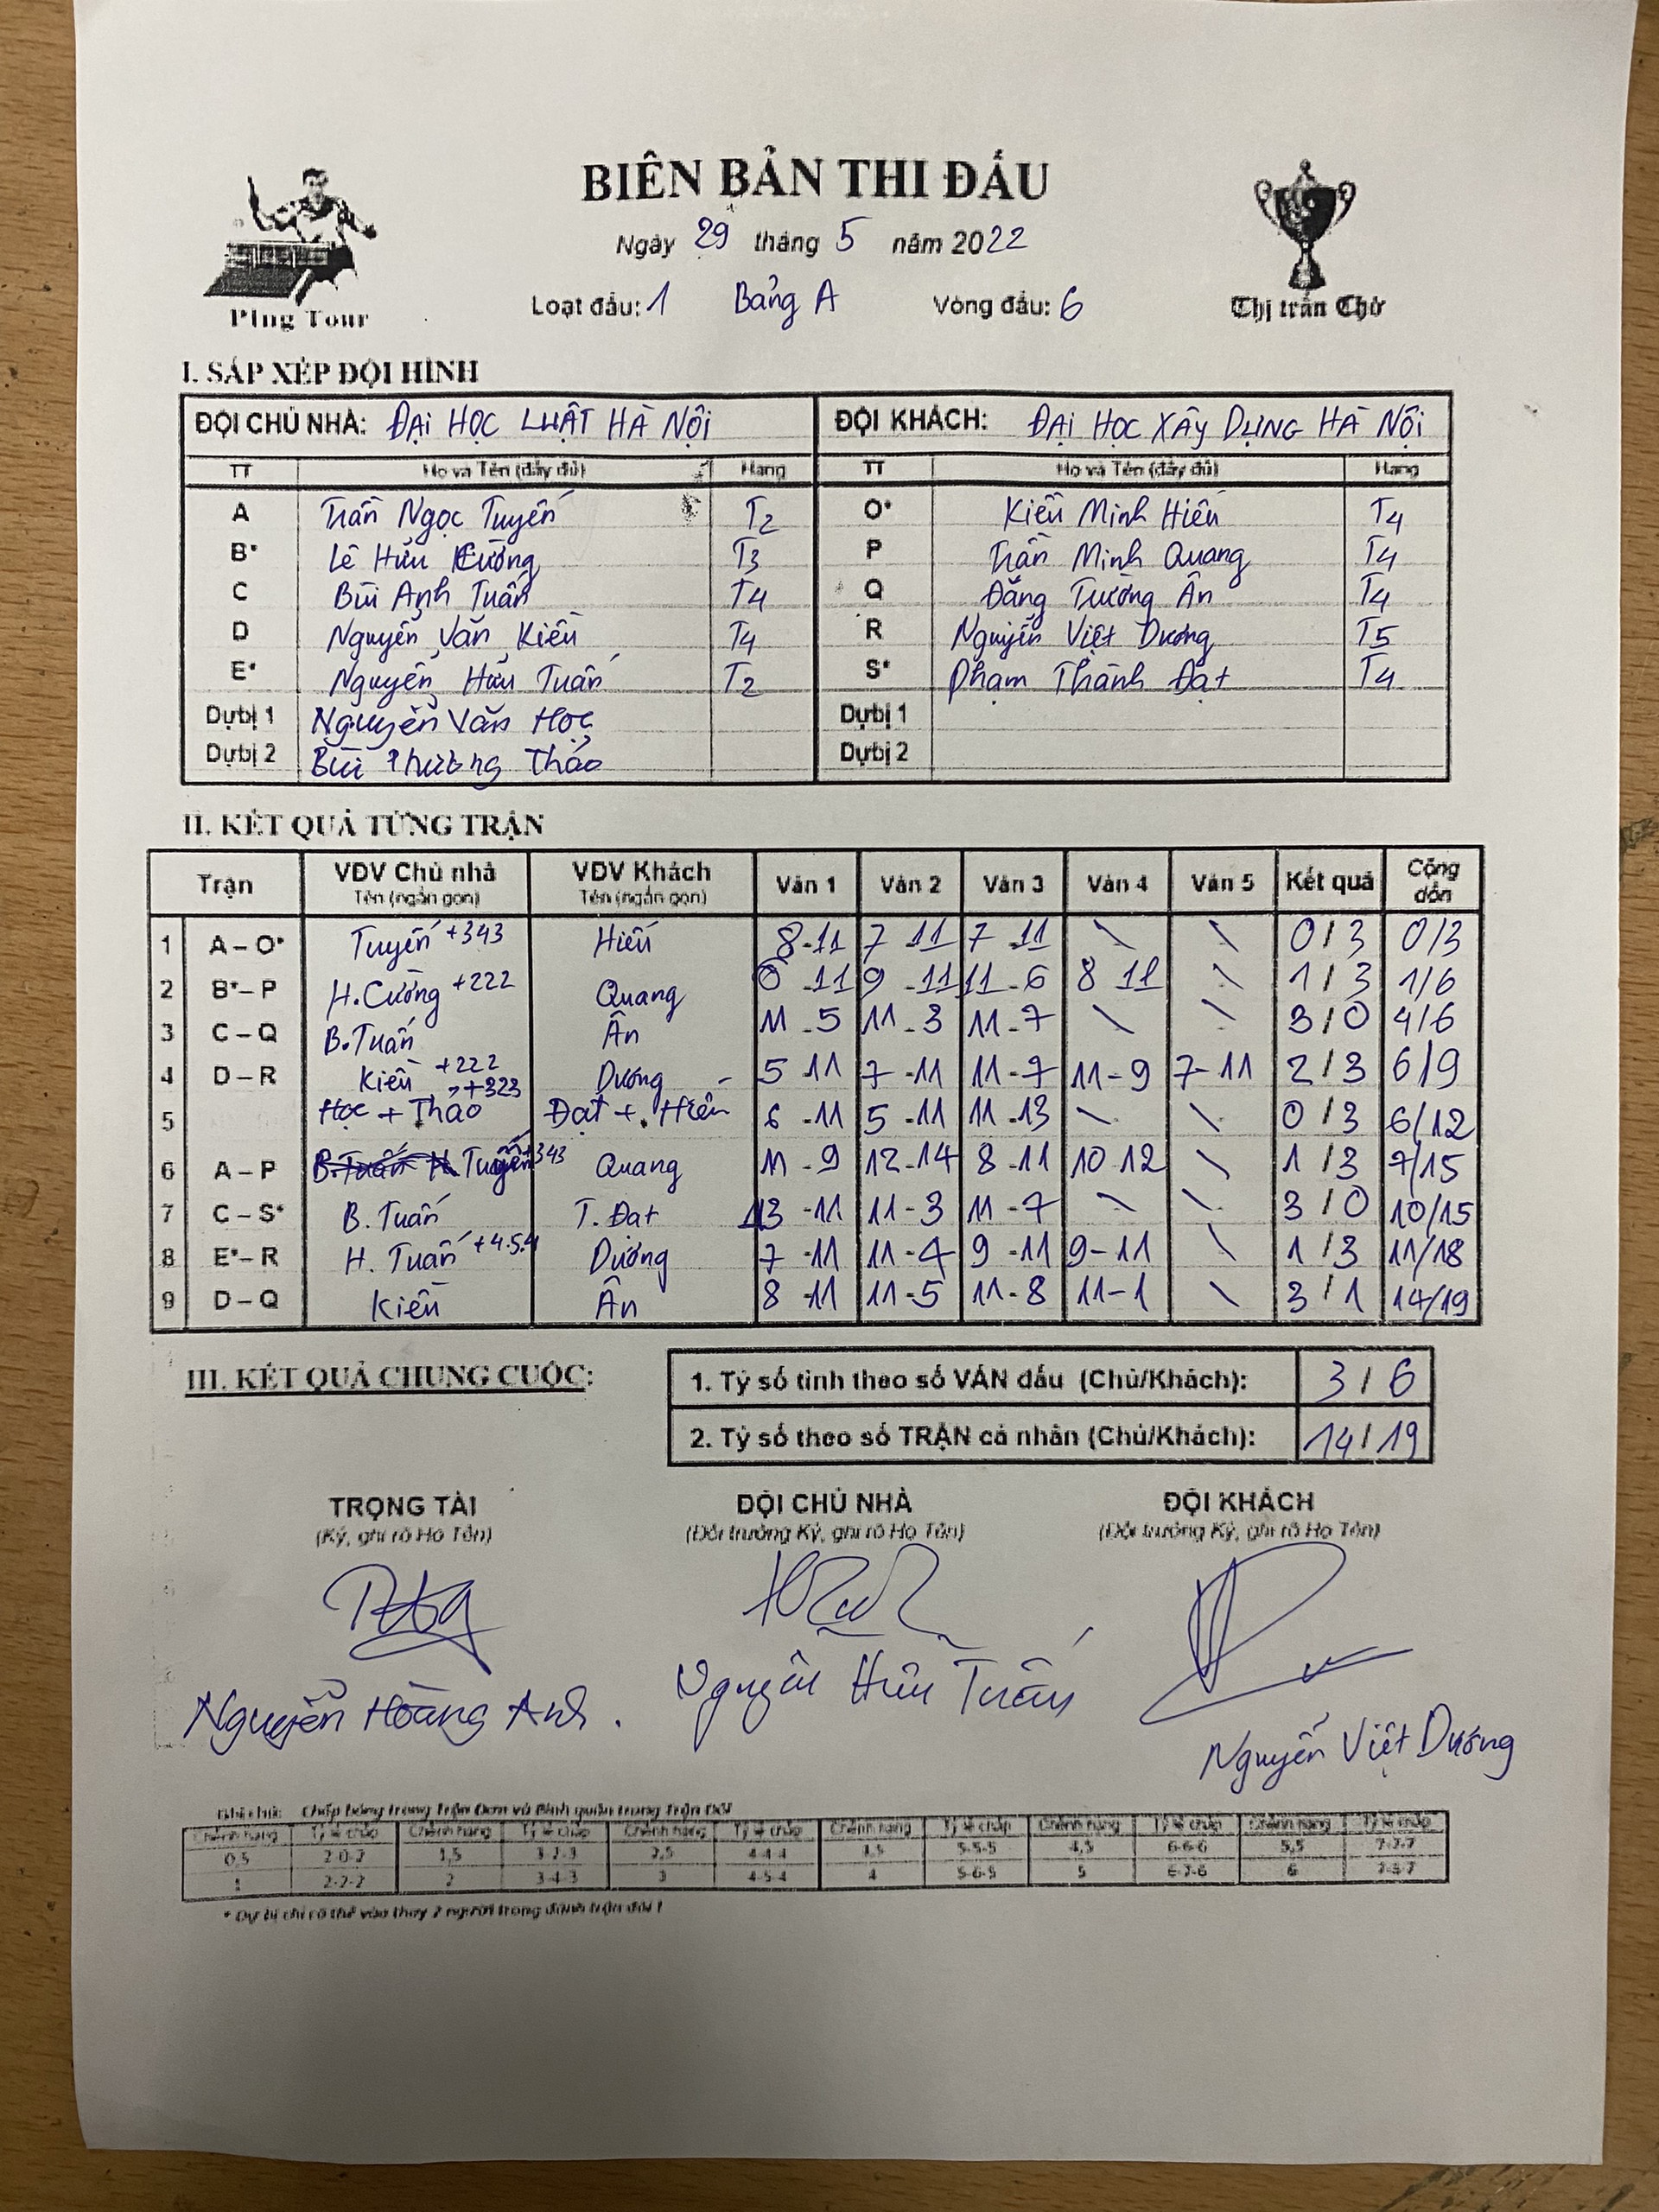 BIÊN BẢN THI ĐẤU
Ngày 29 tháng 5 năm 2022
Loạt đấu: 1 Bảng A Vòng đấu: 6
Ping Tour
Thị trấn Chờ
I. SẮP XẾP ĐỘI HÌNH
ĐỘI CHỦ NHÀ: ĐẠI HỌC LUẬT HÀ NỘI ĐỘI KHÁCH: ĐẠI HỌC XÂY DỰNG HÀ NỘI
TT Họ và Tên (đầy đủ) Hạng TT Họ và Tên (đầy đủ) Hạng
A Trần Ngọc Tuyến T2 O* Kiều Minh Hiếu T4
B* Lê Hữu Cường T3 P Trần Minh Quang T4
C Bùi Anh Tuấn T4 Q Đặng Tường Ân T4
D Nguyễn Văn Kiều T4 R Nguyễn Việt Dương T5
E* Nguyễn Hữu Tuấn T2 S* Phạm Thành Đạt T4
Dự bị 1 Nguyễn Văn Học Dự bị 1
Dự bị 2 Bùi Phương Thảo Dự bị 2
II. KẾT QUẢ TỪNG TRẬN
Trận VĐV Chủ nhà Tên (ngắn gọn) VĐV Khách Tên (ngắn gọn) Ván 1 Ván 2 Ván 3 Ván 4 Ván 5 Kết quả Cộng dồn
1 A – O* Tuyến +343 Hiếu 8-11 7-11 7-11 \ \ 0/3 0/3
2 B* – P H.Cường +222 Quang 6-11 9-11 11-6 8 11 \ 1/3 1/6
3 C – Q B.Tuấn Ân 11-5 11-3 11-7 \ \ 3/0 4/6
4 D – R Kiều +222 Dương 5-11 7-11 11-7 11-9 7-11 2/3 6/9
5 Học + Thảo +323 Đạt + Hiếu 6-11 5-11 11-13 \ \ 0/3 6/12
6 A – P Tuyến +343 Quang 11-9 12-14 8-11 10 12 \ 1/3 7/15
7 C – S* B. Tuấn T. Đạt 13-11 11-3 11-7 \ \ 3/0 10/15
8 E* – R H. Tuấn +4.5.4 Dương 7-11 11-4 9-11 9-11 \ 1/3 11/18
9 D – Q Kiều Ân 8-11 11-5 11-8 11-1 \ 3/1 14/19
III. KẾT QUẢ CHUNG CUỘC:
1. Tỷ số tính theo số VÁN đấu (Chủ/Khách): 3/6
2. Tỷ số theo số TRẬN cá nhân (Chủ/Khách): 14/19
TRỌNG TÀI ĐỘI CHỦ NHÀ ĐỘI KHÁCH
(Ký, ghi rõ Họ Tên) (Đội trưởng Ký, ghi rõ Họ Tên) (Đội trưởng Ký, ghi rõ Họ Tên)
Nguyễn Hoàng Anh. Nguyễn Hữu Tuấn Nguyễn Việt Dương
Ghi chú: Chấp bóng trong trận Đơn và Bình quân trong trận Đôi
Chênh hạng Tỷ lệ chấp Chênh hạng Tỷ lệ chấp Chênh hạng Tỷ lệ chấp Chênh hạng Tỷ lệ chấp Chênh hạng Tỷ lệ chấp Chênh hạng Tỷ lệ chấp
0,5 2-0-2 1,5 3-2-3 2,5 4-4-4 3,5 5-5-5 4,5 6-6-6 5,5 7-7-7
1 2-2-2 2 3-4-3 3 4-5-4 4 5-6-5 5 6-7-6 6
* Dự bị chỉ có thể vào thay 2 người trong đánh trận đôi !